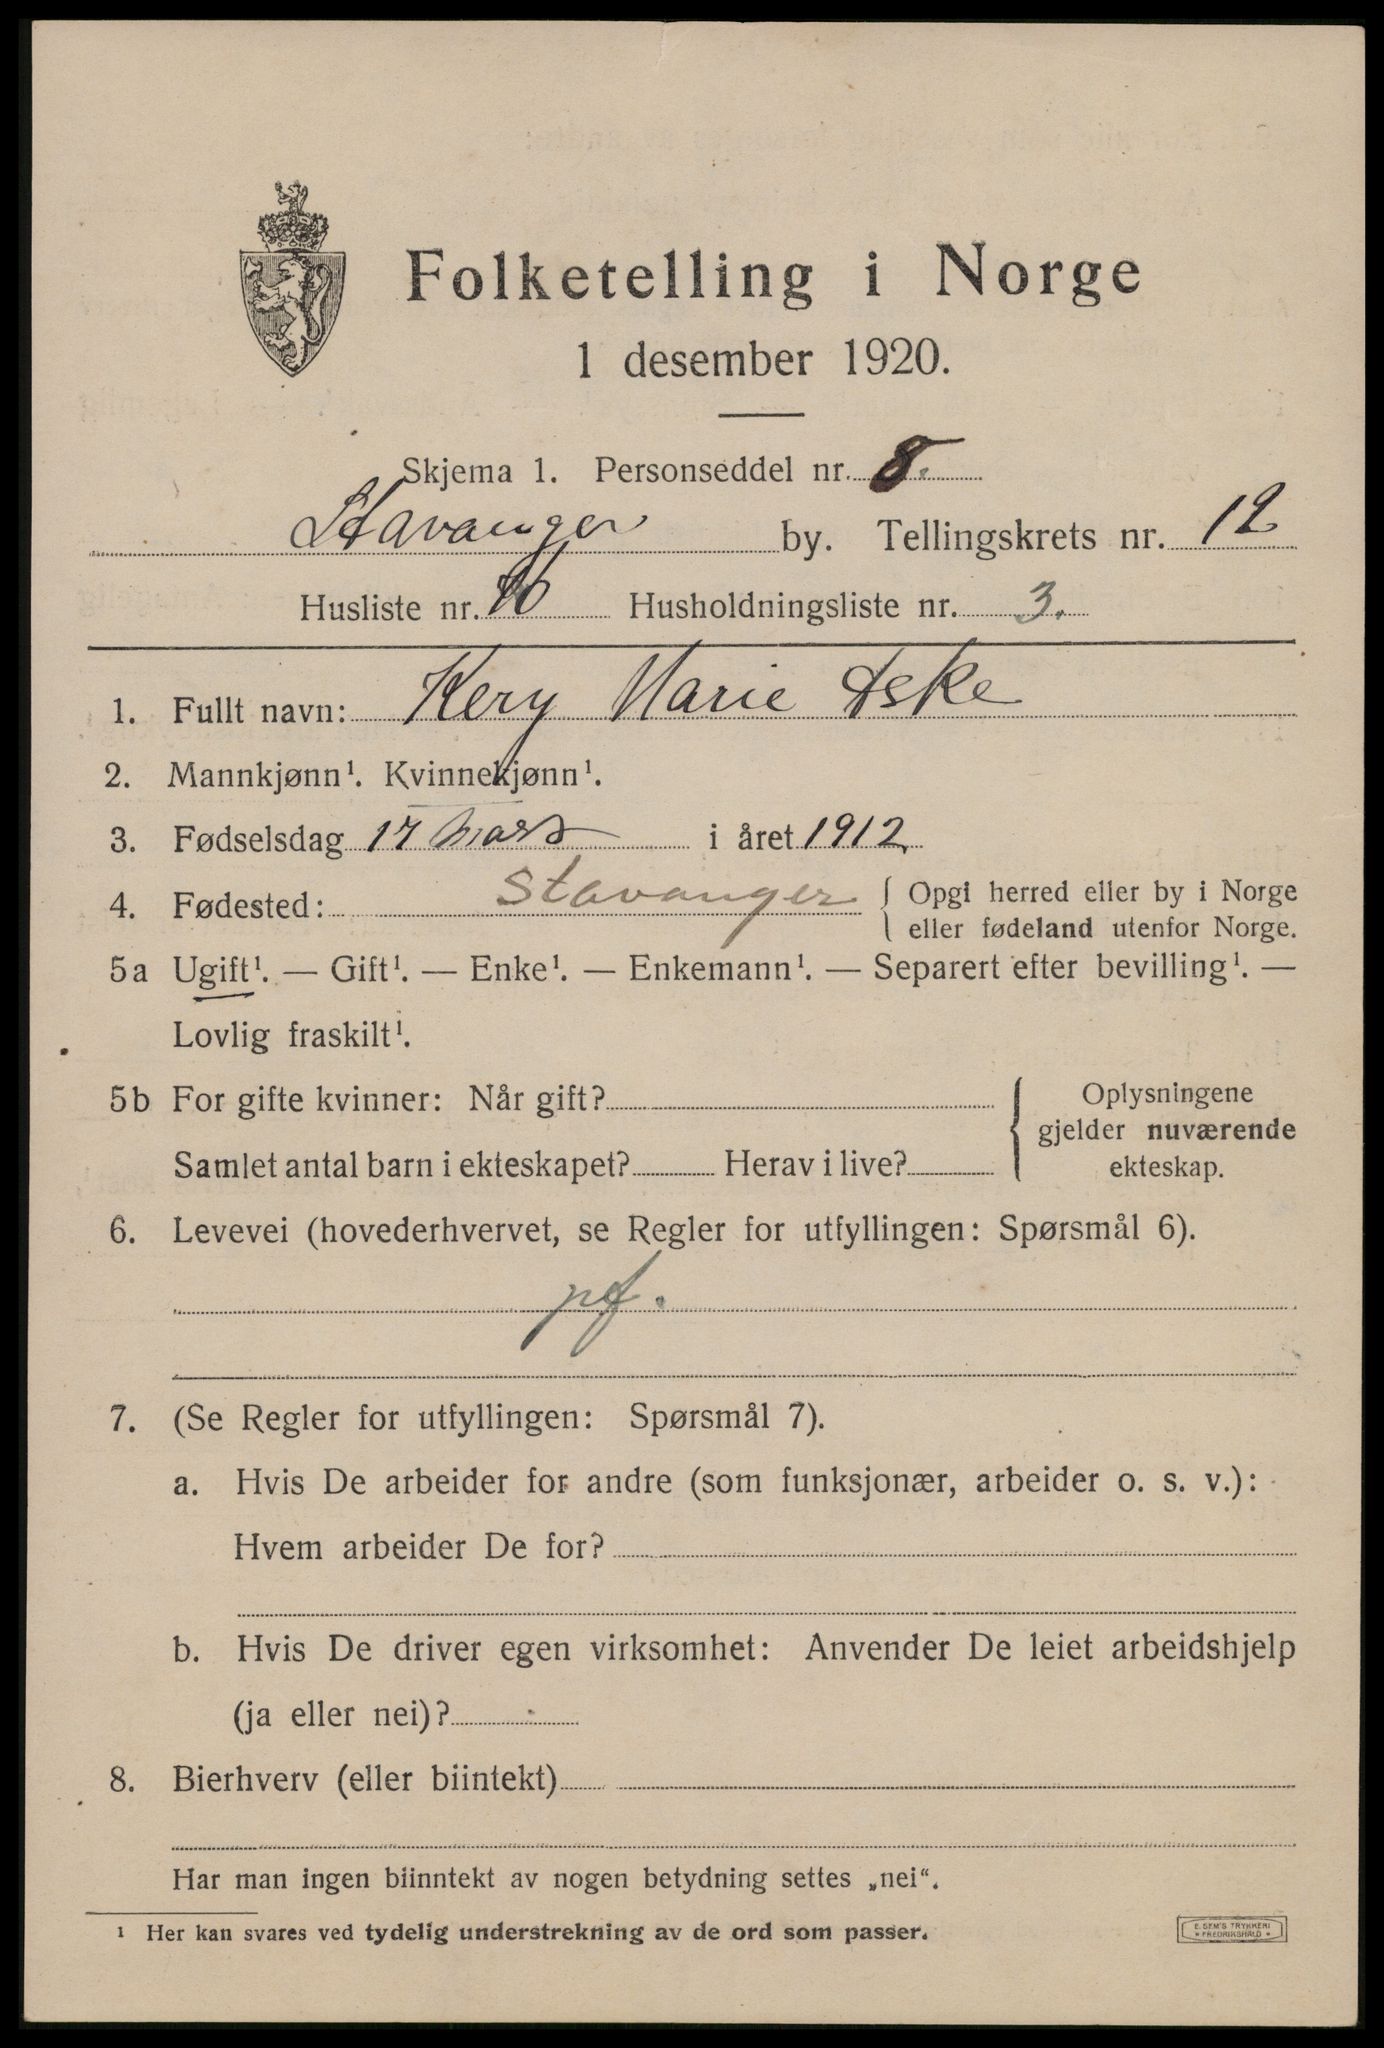 Folketelling i Norge
1 desember 1920.
Skjema 1. Personseddel nr. 8.
Stavanger by. Tellingskrets nr. 12
Husliste nr. Husholdningsliste nr. 3.
1. Fullt navn: Kery Marie Aske
2. Mannkjønn¹. Kvinnekjønn¹.
3. Fødselsdag 17 Mars i året 1912
4. Fødested: Stavanger { Opgi herred eller by i Norge
eller fødeland utenfor Norge.
5a Ugift¹. — Gift¹. — Enke¹. — Enkemann¹. — Separert efter bevilling¹. —
Lovlig fraskilt¹.
5b For gifte kvinner: Når gift? Oplysningene
gjelder nuværende
Samlet antal barn i ekteskapet? Herav i live? ekteskap.
6. Levevei (hovederhvervet, se Regler for utfyllingen: Spørsmål 6).
pf.
7. (Se Regler for utfyllingen: Spørsmål 7).
a. Hvis De arbeider for andre (som funksjonær, arbeider o. s. v.):
Hvem arbeider De for?
b. Hvis De driver egen virksomhet: Anvender De leiet arbeidshjelp
(ja eller nei)?
8. Bierhverv (eller biintekt)
Har man ingen biinntekt av nogen betydning settes „nei“.
¹ Her kan svares ved tydelig understrekning av de ord som passer.
E. SEM'S TRYKKERI
* FREDRIKSHALD *